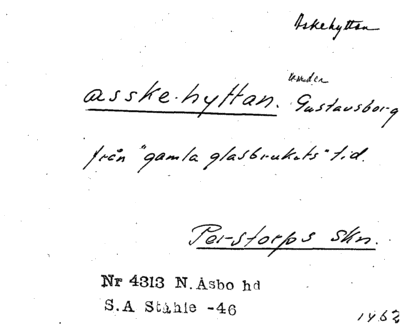 Askehyttan
asske-hyttan. under Gustavsborg
från "gamla glasbrukets" tid.
Per-storps skn.
Nr 4313 N. Åsbo hd
S.A Ståhle -46